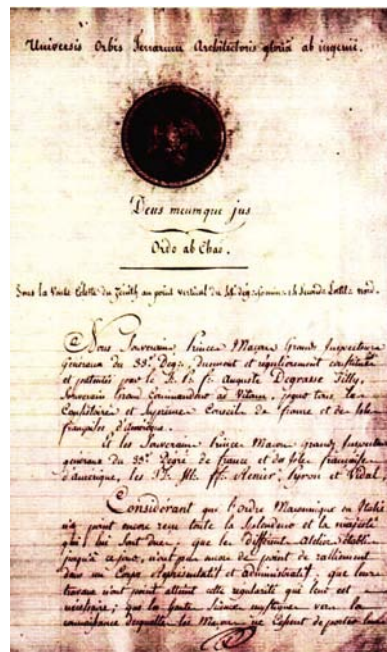 Universis Orbis Terrarum Architectonis gloria ab ingenii.
Deus meumque jus
Ordo ab Chao.
Sous la Voute Céleste du Zénith au point vertical du deg. 2 Latit. nord.
Nous Souverains Princes Maçons Grands Inspecteurs
Généraux du 33e Degr. duement et régulièrement constitués
et patentés par le fr. Auguste Degrasse Tilly,
Souverain Grand Commandeur ad Vitam, pour tous les
Consistoires et Suprême Conseil de france et des Isles
françaises d'amérique.
et les Souverains Princes Maçons grands Inspecteurs
généraux du 33e Dégré de france et des Isles françaises
d'amérique, les ff. Renier, Pyron et Vidal,
Considérant que l'ordre Maçonnique en Italie
n'a point encore reçu toute la Splendeur et la majesté
qui lui sont due; que les différents Atelier établis
jusqu'à ce jour, n'ont pas encore de point de ralliement
dans un Corps Représentatif et administratif, que leur
travaux n'ont point atteint cette régularité qui leur est
nécessaire; que les haute Science mystiques vers la
connaissance les Maçon ne Cessent de porter leur